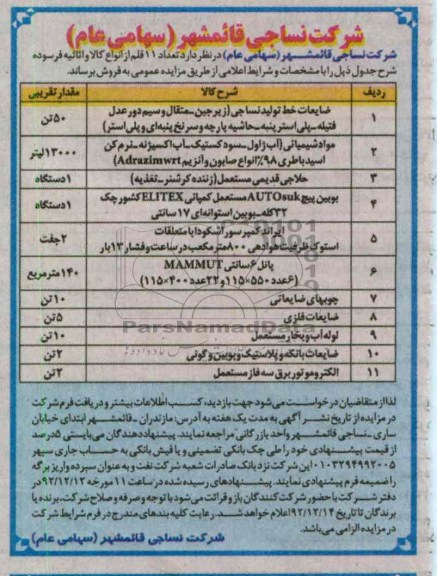 شرکت نساجی قائمشهر (سهامی عام)
شرکت نساجی قائمشهر (سهامی عام) در نظر دارد تعداد ۱۱ قلم از انواع کالا و اثاثیه فرسوده
شرح جدول ذیل را با مشخصات و شرایط اعلامی از طریق مزایده عمومی به فروش برساند.
ردیف شرح کالا مقدار تقریبی
۱ ضایعات خط تولید نساجی (زیرجین_متقال و سیم دور عدل
فتیله_پلی استر پنبه_حاشیه پارچه و سرنخ پنبه‌ای و پلی استر) ۵۰ تن
۲ مواد شیمیائی (آب ژاول_سود کستیک_آب اکسیژنه_نرم کن
اسید باطری ۹۸٪ انواع صابون و آنزیم Adrazimwrt) ۱۳۰۰۰ لیتر
۳ حلاجی قدیمی مستعمل (زننده کرشنر_تغذیه) ۱ دستگاه
۴ بوبین پیچ AUTOsuk مستعمل کمپانی ELITEX کشور چک
۳۲ کله_بوبین استوانه‌ای ۱۷ سانتی ۱ دستگاه
۵ ایراند کمپرسور اشکودا با متعلقات
استوک ظرفیت هوادهی ۸۰۰ متر مکعب در ساعت و فشار ۱۳ بار ۲ جفت
۶ پانل ۶ سانتی MAMMUT
(۶ عدد ۵۵۰×۱۱۵ و ۲۲ عدد ۴۰۰×۱۱۵) ۱۴۰ متر مربع
۷ چوبهای ضایعاتی ۱۰ تن
۸ ضایعات فلزی ۵ تن
۹ لوله آب و بخار مستعمل ۱۰ تن
۱۰ ضایعات بانکه و پلاستیک و بوبین و گونی ۲ تن
۱۱ الکتروموتور برق سه فاز مستعمل ۲ تن
ParsNamadData
لذا از متقاضیان درخواست می‌شود جهت بازدید، کسب اطلاعات بیشتر و دریافت فرم شرکت
در مزایده از تاریخ نشر آگهی به مدت یک هفته به آدرس: مازندران_قائمشهر ابتدای خیابان
ساری_نساجی قائمشهر واحد بازرگانی مراجعه نمایند. پیشنهاد دهندگان می‌بایستی ۵ درصد
از قیمت پیشنهادی خود را طی چک بانکی تضمینی و یا فیش بانکی به حساب جاری سپهر
۰۱۰۳۲۹۴۹۹۲۰۰۵ این شرکت نزد بانک صادرات شعبه شرکت نفت و به عنوان سپرده واریز برگه
را ضمیمه فرم پیشنهادی نمایند. پیشنهادهای رسیده شده در ساعت ۱۱ مورخه ۹۲/۱۲/۱۲ در
دفتر شرکت با حضور شرکت کنندگان باز و قرائت می‌شود با توجه صرفه و صلاح شرکت، برنده یا
برندگان تا تاریخ ۹۲/۱۲/۱۴ اعلام خواهد شد. رعایت کلیه بندهای مندرج در فرم شرایط شرکت
در مزایده الزامی می‌باشد.
شرکت نساجی قائمشهر (سهامی عام)